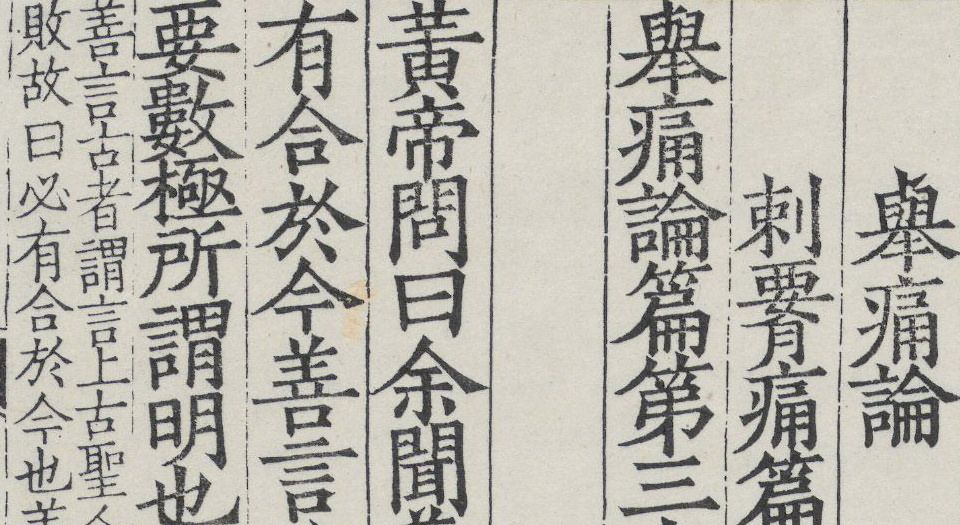 舉痛論
刺腰痛篇
舉痛論篇第三
黃帝問曰余聞
有合於今善言
要數極所謂明也
善言古者謂言上古聖
敗故曰必有合於今也